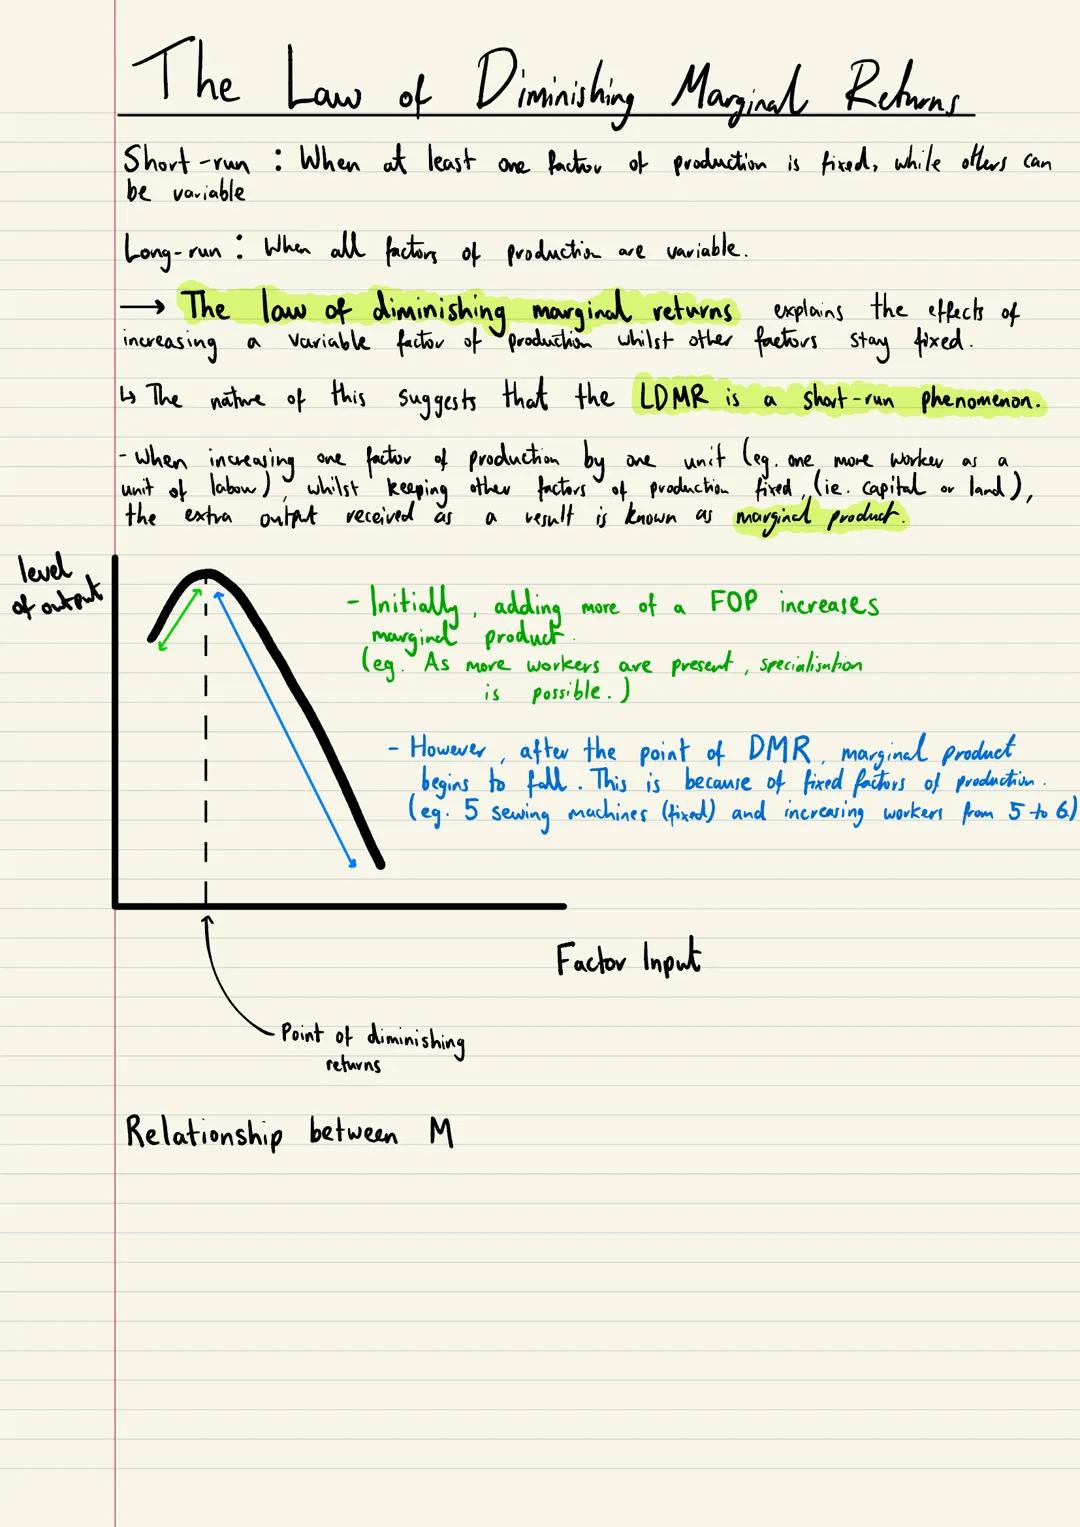 The Law of Diminishing Marginal Returns
Short-run : When at least one factor of production is fixed, while others can
be variable
Long-run : When all factors of production are variable.
→ The law of diminishing marginal returns explains the effects of
increasing a variable factor of production whilst other factors stay fixed.
↳ The nature of this suggests that the LDMR is a short-run phenomenon.
- When increasing one factor of production by one unit (eg. one more worker as a
unit of labour), whilst keeping other factors of production fixed, (ie. capital or land),
the extra output received as a result is known as marginal product.
level
of output
- Initially, adding more of a FOP increases
marginal product.
(eg. As more workers are present, specialisation
is possible.)
- However, after the point of DMR, marginal product
begins to fall. This is because of fixed factors of production.
(eg. 5 sewing machines (fixed) and increasing workers from 5 to 6)
Factor Input
Point of diminishing
returns
Relationship between M